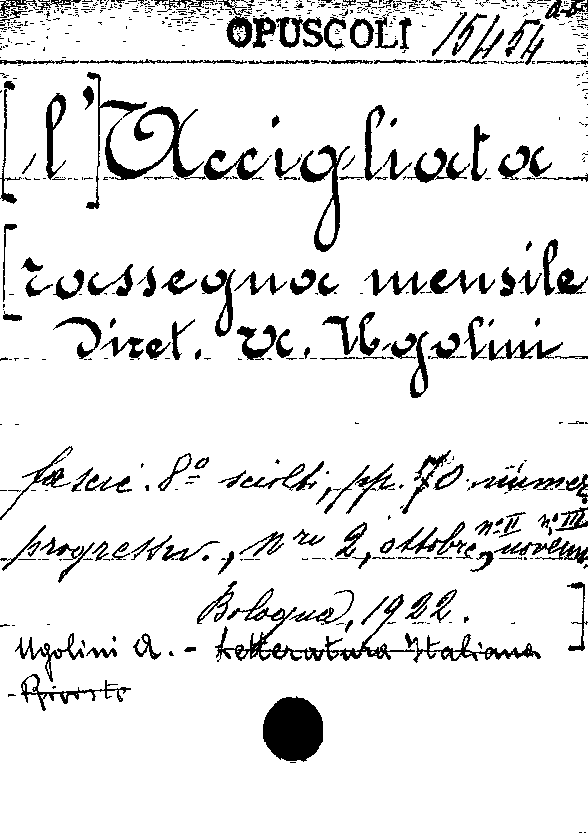 OPUSCOLI 15/454
[l']Accigliata
[rassegna mensile
Diret. A. Ugolini
fasci. 8º sciolti, pp. 70 numer.
progressiv., nri 2, ottobre, nº II nº III novem
Bologna, 1922.]
Ugolini A. - Letteratura Italiana
- Riviste